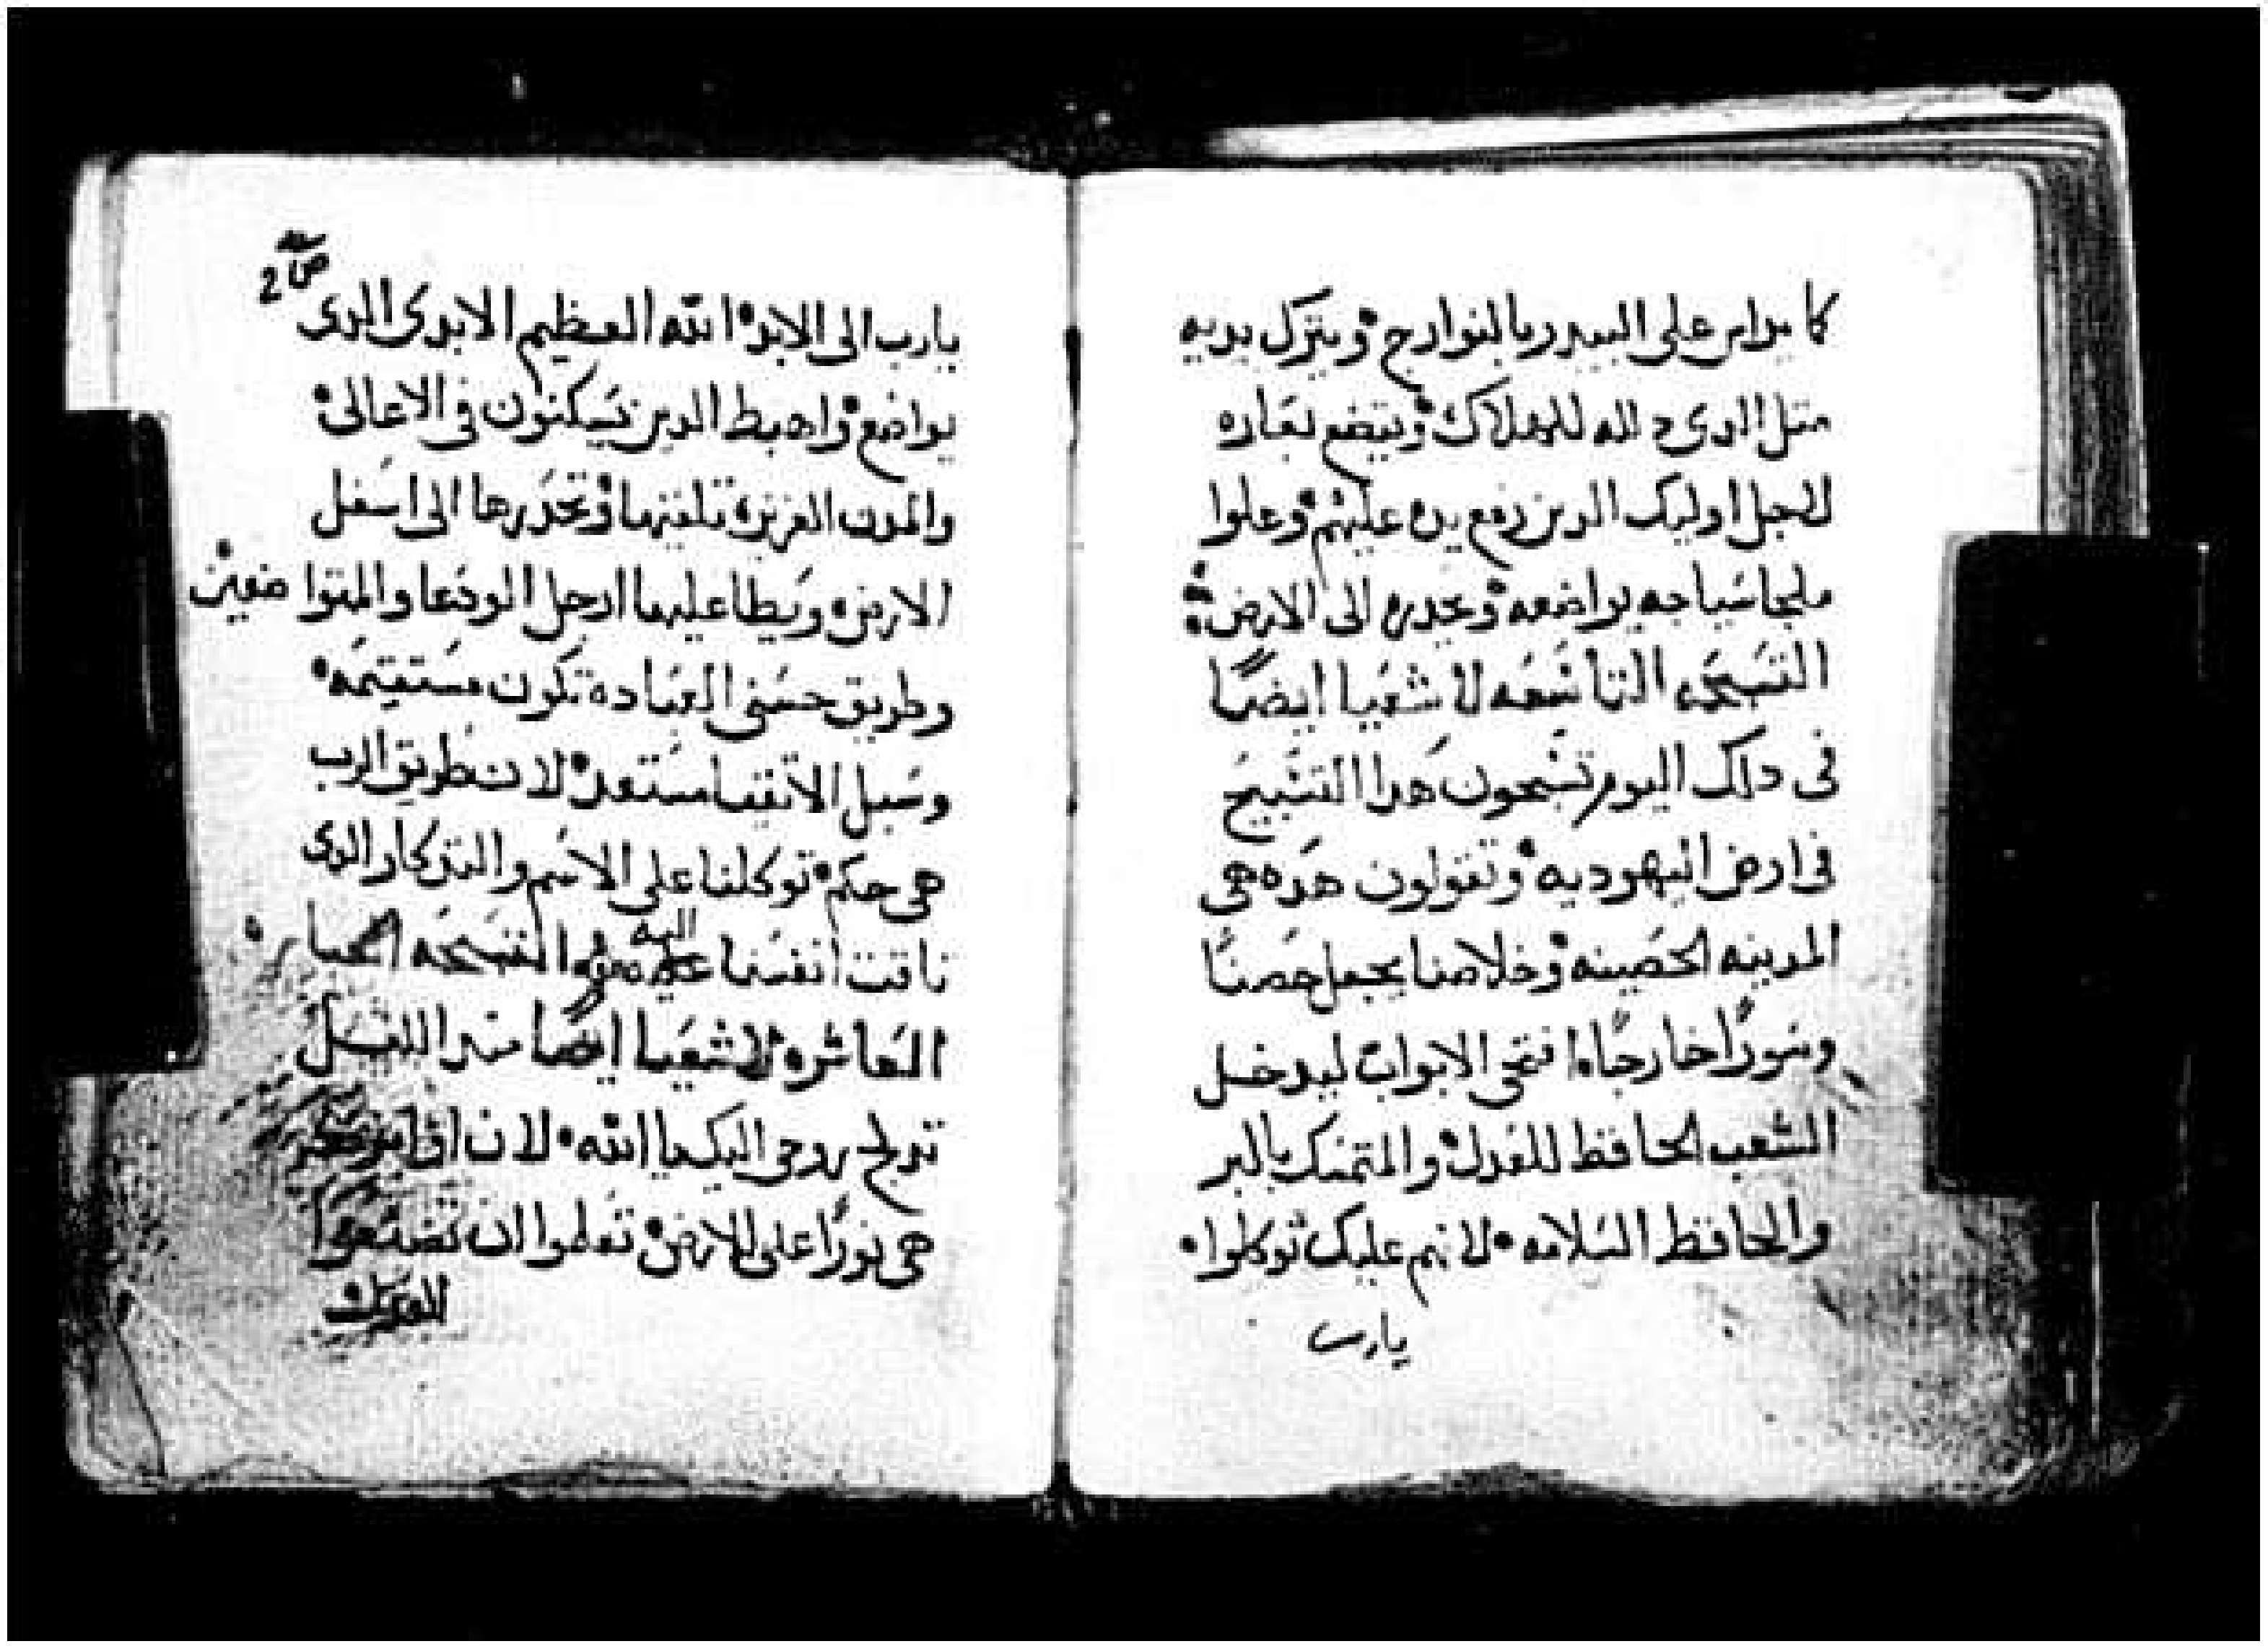 كما يداس على البيدر بالنوارج وينزل يديه
متل الدى دلله للهلاك ويتضع تعاره
للجبل اوليك الدين رفع يده عليهم وعلوا
ملجا سياجه يواضعه ويحدره الى الارض
التسبحه التاسعه لاشعيا ايضًا
فى داك اليوم تسبحون هدا التسبيح
فى ارض اليهوديه وتقولون هده هى
المدينه الحصينه وخلاصنا يجعل حصنًا
وسورًا خارجًا افتحى الابواب ليدخل
الشعب الحافظ للعدل والمتمسك بالبر
والحافظ السلامه لانهم عليك توكلوا
يارب
ص2
يارب الى الابد الله العظيم الابدى الدى
يواضع واهبط الدين يسكنون فى الاعالى
والمدن العزيزه تلقيها وتحدرها الى اسفل
الارض ويطا عليها ارجل الودعا والمتواضعين
وطريق حسنى العباده تكون مستقيمه
وسبل الاتقيا مستعد لان طريق الرب
هى حكم توكلنا على الاسم والتدكار الدى
تاقت انفسنا اليه التسبحه
العاشره لاشعيا ايضًا مند الليل
تدلج روحى اليك يا الله لان اوامرك
هى نورًا على الارض تعلموا ان تصنعوا
العدل